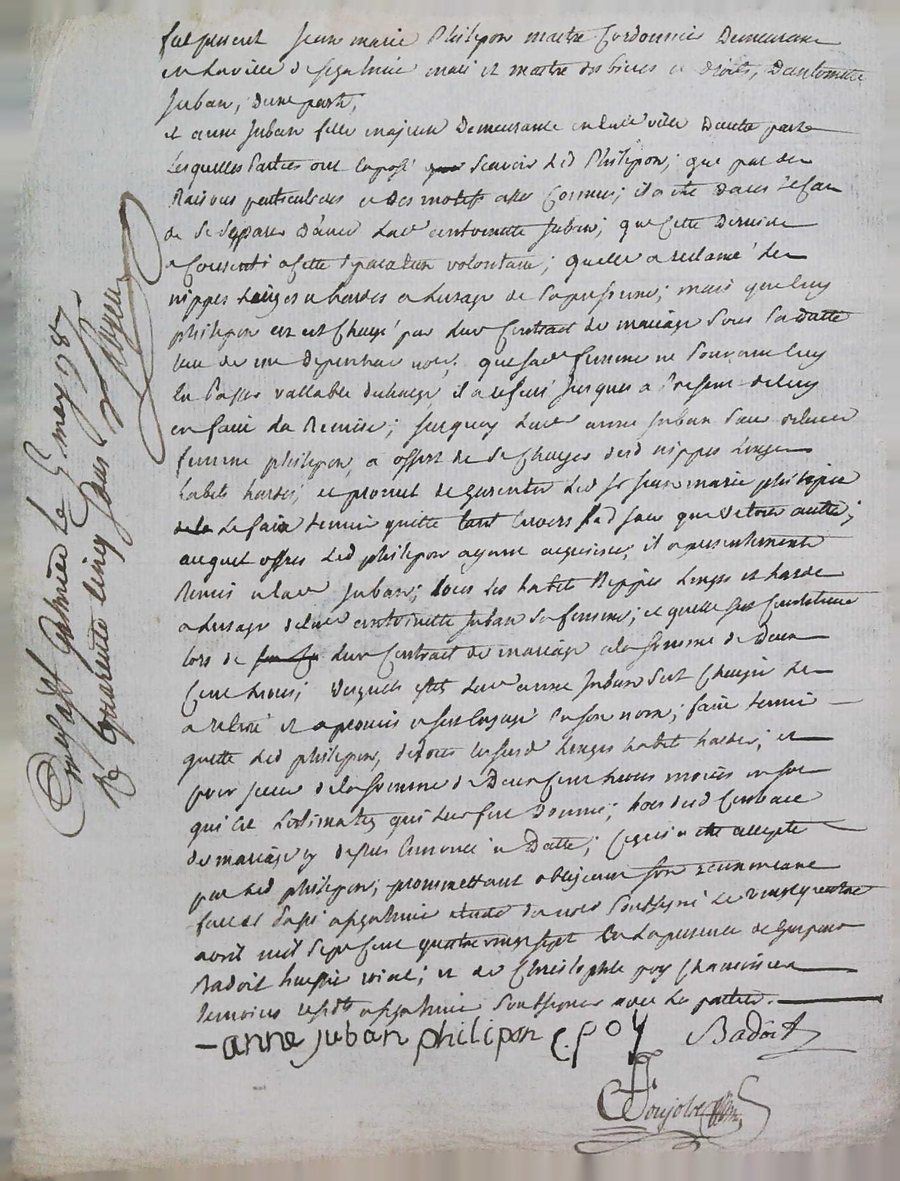 fut present Jean marie Philipon maitre Cordonnier Demeurant
en la ville de st galmier mari et maitre des biens et droits, Dantoinette
Juban, dune part,
et anne Juban fille majeure Demeurante en lad ville Dautre part
Lesquelles Parties ont Exposé Scavoir Led Philipon; que par des
Raisons particulieres et Des motifs assés Connus; il a été dans le Cas
de se Separer D'avec Lade antoinette Juban; que Cette Derniere
a Consenti a Cette separation volontaire; quelle a reclamé les
nippes Linges et hardes a Lusage de sa personne; mais que luy
philipon en est Chargé par leur Contrat de mariage Sous Sa Datte
que sade femme ne Pouvant luy
En Passer vallable dicharge il a refusé Jusques a Present de luy
en faire La Remise; surquoy lade anne Juban Soeur de lade
femme philipon, a offert de se Charger desd nippes Linges
habits hardes, et promet de Garentir Led Sr Jean marie philipon
Le faire tenir quitte tant Envers sad soeur que de tous autres;
auquel offres Led philipon ayant acquiescé; il a presentement
Remis a lade Juban; tous Les habits Nippes Linges et hardes
a Lusage de lade antoinette Juban Sa femme; et quelle sest Constituée
lors de leur Contrat de mariage a la somme de Deux
Cent livres; desquels effets lade anne Juban sest Chargée les
a retiré et a promis et sest Engagé En son nom; faire tenir
quitte Led philipon, de tous Lesusd Linges habits hardes; et
pour
qui Est Lestimation qui leur fut Donné; lors dud Contrat
de mariage cy dessus Enoncé et Datté; Ce qui a été accepté
par Led philipon; promettant obligeant son renonceant
fait et Passé a st galmier etude du nore Soussigné Le vingt quatre
avril mil Sept Cent quatre vingt Sept En La presence de
Badoit huissier roial; et de Christophle poy
temoins residts a st galmier soussignés avec Les parties.
anne juban philipon C. poy Badoit
Controllé a st Galmier le 5 may 1787
Rs Quarente Cinq Sous